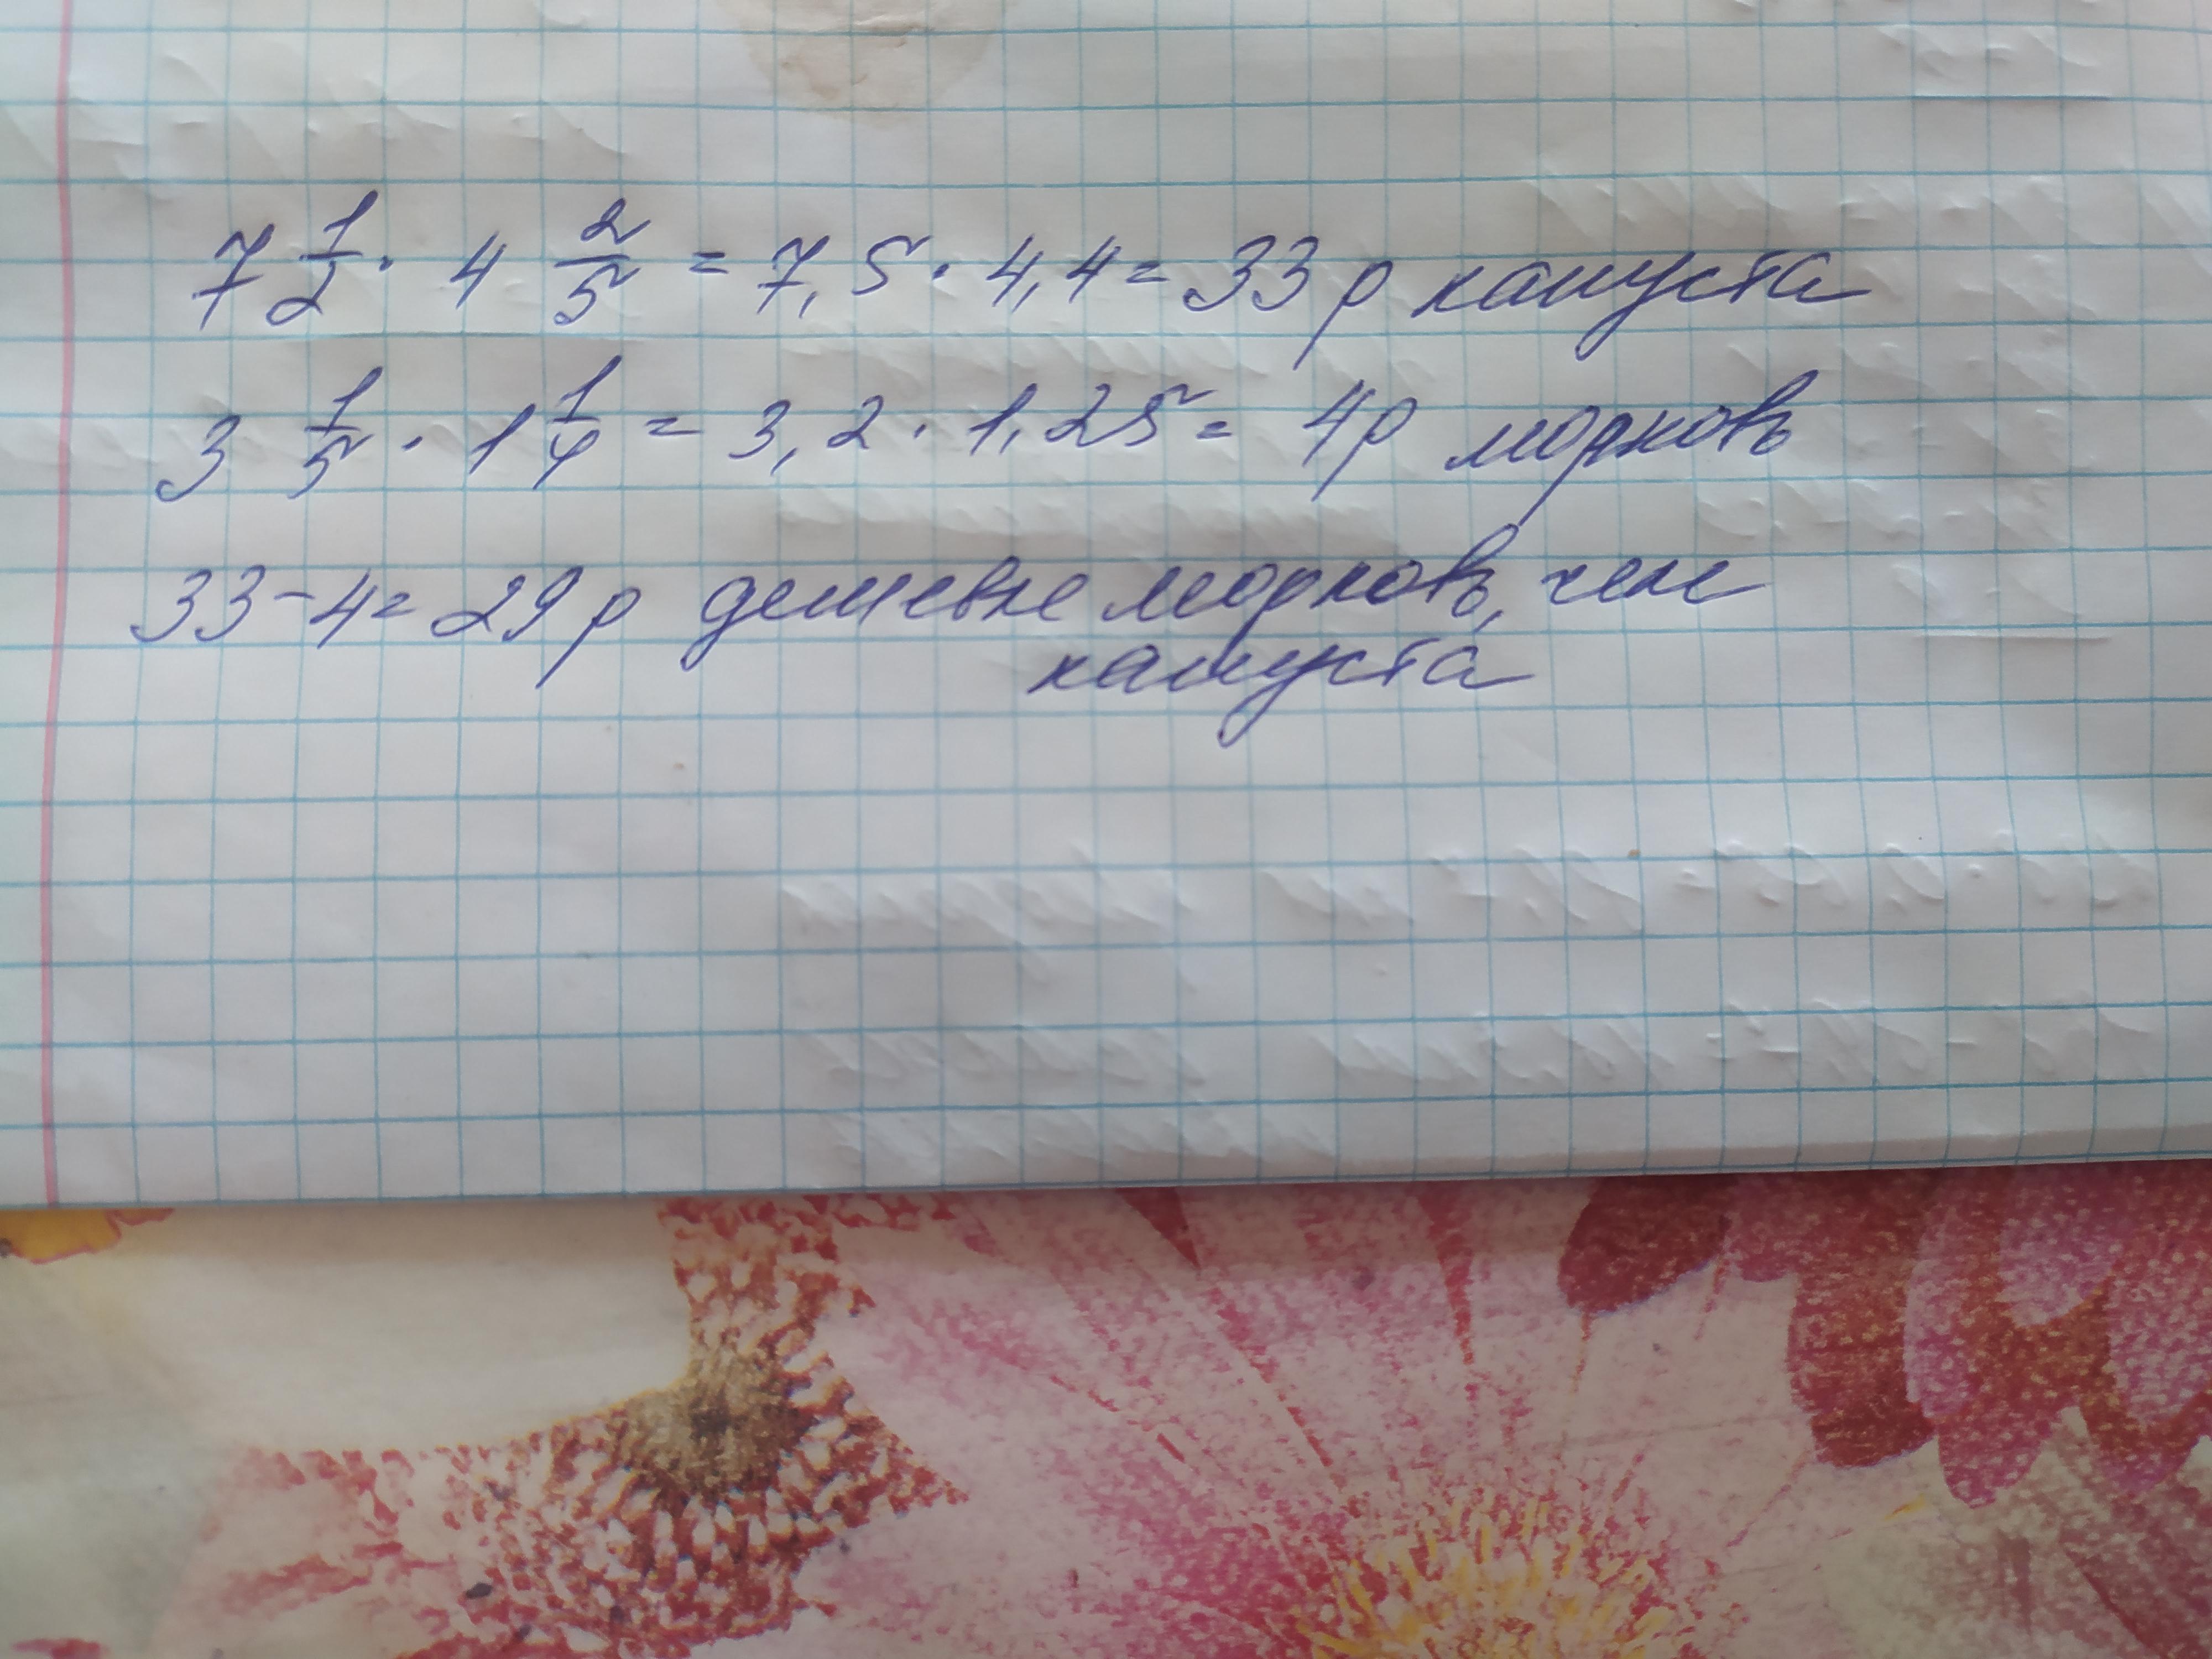 7 1/2 · 4 2/5 = 7,5 · 4,4 = 33 р капуста
3 1/5 · 1 1/4 = 3,2 · 1,25 = 4р морковь
33 - 4 = 29 р дешевле морковь, чем
капуста